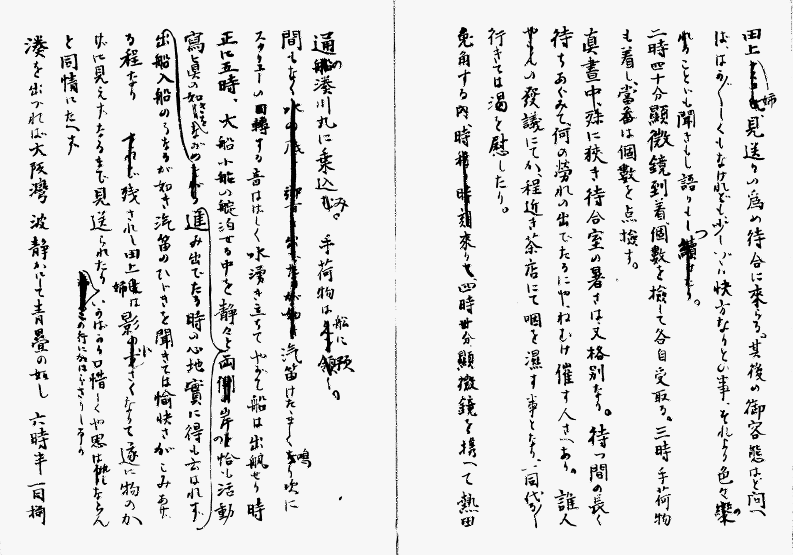 田上姉見送りの為め待合に来らる。其後の御容態はと問へ
ば、はかばかしくもなけれども少しづゝは快方なりとの事、それより色々楽の
れることゝも聞きもし語りもしつ
二時四十分顕微鏡到着、個数を検して各自受取る。三時手荷物
も着し、当番は個数を点検す。
真昼中、殊に狭き待合室の暑さは又格別なり。待つ間の長く
待ちあぐみて、何の労れの出でたるにや、ねむけ催す人さへあり。誰人
やらんの発議にてか、程近き茶店にて咽を濕す事となり、一同代り
行きては渇を慰したり。
兎角する内、時刻来りて、四時廿分顕微鏡を携へて熱田
通の船湊川丸に乗込み。手荷物は船に預
間もなく 汽笛けたゝましく鳴り次に
スクリューの回轉する音はげしく水湧き立ちてやがて船は出帆せり時
正に五時、大船小船の碇泊せる中を静々と両岸の恰も活動
寫真の如き 進み出でたる時の心地實に得も云はれず
出船入船の 如き汽笛のひゞきを聞きては愉快さがこみあげ
る程なり されど残されし田上姉は影小さくなりて遂に物のか
げに見えずなるまで見送られたり、いかばかり口惜しくや思はれならん
この行に加はらざりしを
と同情にたへず
湊を出づれば大阪灣 波静かにして青畳の如し 六時半一同